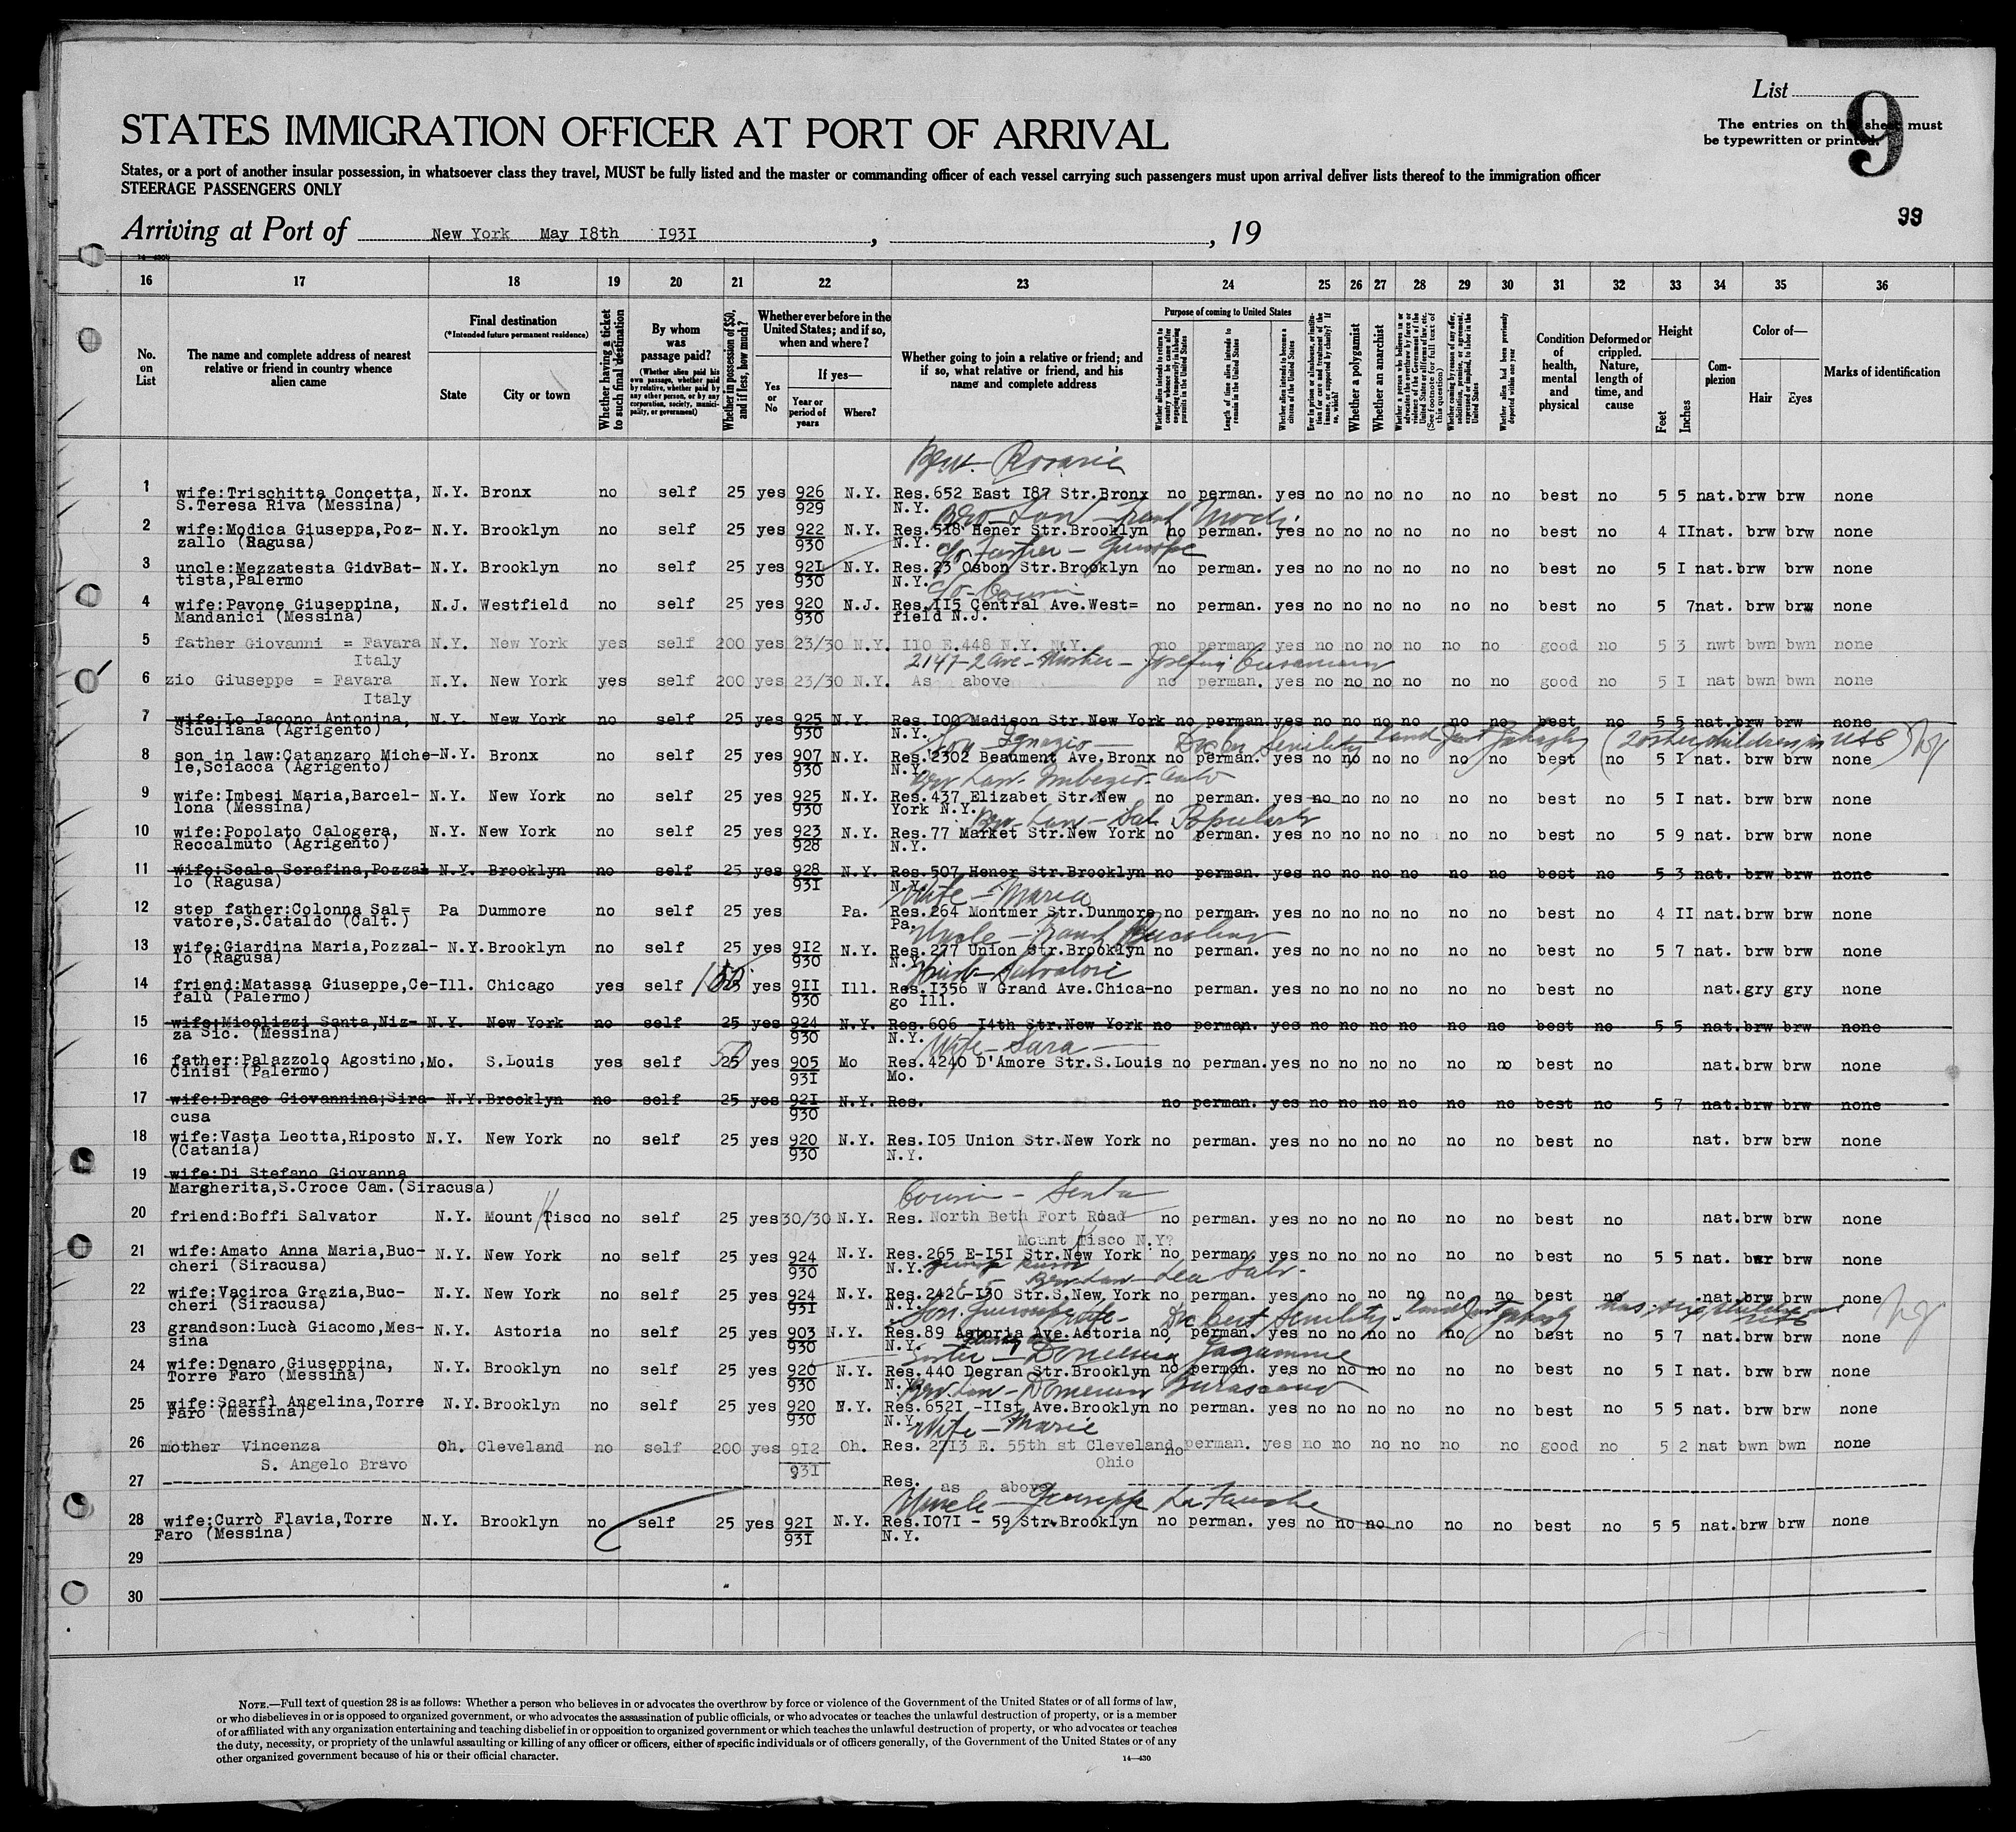 List
9
The entries on this sheet must
be typewritten or printed.
STATES IMMIGRATION OFFICER AT PORT OF ARRIVAL
States, or a port of another insular possession, in whatsoever class they travel, MUST be fully listed and the master or commanding officer of each vessel carrying such passengers must upon arrival deliver lists thereof to the immigration officer
STEERAGE PASSENGERS ONLY
Arriving at Port of New York May I8th I93I , , 19
16 17 18 19 20 21 22 23 24 25 26 27 28 29 30 31 32 33 34 35 36
No. on List
The name and complete address of nearest relative or friend in country whence alien came
Final destination
(*Intended future permanent residence)
State
City or town
Whether having a ticket to such final destination
By whom was passage paid?
(Whether alien paid his own passage, whether paid by relative, whether paid by any other person, or by any corporation, society, municipality, or government)
Whether in possession of $50, and if less, how much?
Whether ever before in the United States; and if so, when and where?
Yes or No
If yes—
Year or period of years
Where?
Whether going to join a relative or friend; and if so, what relative or friend, and his name and complete address
Purpose of coming to United States
Length of time alien intends to remain in the United States
Whether alien intends to become a citizen of the United States
Whether a polygamist
Whether an anarchist
Whether alien had been previously deported within one year
Condition of health, mental and physical
Deformed or crippled. Nature, length of time, and cause
Height
Feet
Inches
Complexion
Color of—
Hair
Eyes
Marks of identification
1 wife:Trischitta Concetta, N.Y. Bronx no self 25 yes 926 N.Y. Res.652 East I87 Str.Bronx no perman. yes no no no no no no best no 5 5 nat. brw brw none
S.Teresa Riva (Messina) 929 N.Y.
2 wife:Modica Giuseppa,Poz- N.Y. Brooklyn no self 25 yes 922 N.Y. Res.518 Hener Str.Brooklyn no perman. yes no no no no no no best no 4 II nat. brw brw none
zallo (Ragusa) 930 N.Y.
c/o Father - Giuseppe
3 uncle:Mezzatesta GidvBat- N.Y. Brooklyn no self 25 yes 92I N.Y. Res.23 Osbon Str.Brooklyn no perman. yes no no no no no no best no 5 I nat. brw brw none
tista,Palermo 930 N.Y.
c/o Cousin
4 wife:Pavone Giuseppina, N.J. Westfield no self 25 yes 920 N.J. Res.II5 Central Ave.West= no perman. yes no no no no no no best no 5 7 nat. brw brw none
Mandanici (Messina) 930 field N.J.
5 father Giovanni = Favara N.Y. New York yes self 200 yes 23/30 N.Y. II0 E.448 N.Y. N.Y. no perman yes no no no no no no good no 5 3 nwt bwn bwn none
Italy
2147-2 Ave - Mother -
6 zio Giuseppe = Favara N.Y. New York yes self 200 yes 23/30 N.Y. As above no perman. yes no no no no no no good no 5 I nat bwn bwn none
Italy
7 wife:Lo Jacono Antonina, N.Y. New York no self 25 yes 925 N.Y. Res.I00 Madison Str.New York no perman. yes no no no no no no best no 5 5 nat. brw brw none
Siculiana (Agrigento) 930 N.Y.
Son Ignazio
8 son in law:Catanzaro Miche- N.Y. Bronx no self 25 yes 907 N.Y. Res.2302 Beaument Ave.Bronx no perman. yes no no no no no no best no 5 I nat. brw brw none
le,Sciacca (Agrigento) 930 N.Y.
9 wife:Imbesi Maria,Barcel- N.Y. New York no self 25 yes 925 N.Y. Res.437 Elizabet Str.New no perman. yes no no no no no no best no 5 I nat. brw brw none
lona (Messina) 930 York N.Y.
10 wife:Popolato Calogera, N.Y. New York no self 25 yes 923 N.Y. Res.77 Market Str.New York no perman. yes no no no no no no best no 5 9 nat. brw brw none
Reccalmuto (Agrigento) 928 N.Y.
11 wife:Scala Serafina,Pozzal N.Y. Brooklyn no self 25 yes 928 N.Y. Res.507 Hener Str.Brooklyn no perman. yes no no no no no no best no 5 3 nat. brw brw none
lo (Ragusa) 93I N.Y.
Wife - Maria
12 step father:Colonna Sal= Pa Dummore no self 25 yes Pa. Res.264 Montmer Str.Dunmore no perman. yes no no no no no no best no 4 II nat. brw brw none
vatore,S.Cataldo (Calt.) Pa.
13 wife:Giardina Maria,Pozzal- N.Y. Brooklyn no self 25 yes 9I2 N.Y. Res.277 Union Str.Brooklyn no perman. yes no no no no no no best no 5 7 nat. brw brw none
lo (Ragusa) 930 N.Y.
14 friend:Matassa Giuseppe,Ce- Ill. Chicago yes self yes 9II Ill. Res.I356 W Grand Ave.Chica- no perman. yes no no no no no no best no nat. gry gry none
falù (Palermo) 930 go Ill.
15 wife:Micalizzi Santa,Niz- N.Y. New York no self 25 yes 924 N.Y. Res.606 -I4th Str.New York no perman. yes no no no no no no best no 5 5 nat. brw brw none
za Sic. (Messina) 930 N.Y.
Wife - Sara
16 father:Palazzolo Agostino, Mo. S.Louis yes self 25 50 yes 905 Mo Res.4240 D'Amore Str.S.Louis no perman. yes no no no no no no best no nat. brw brw none
Cinisi (Palermo) 93I Mo.
17 wife:Drago Giovannina;Sira- N.Y. Brooklyn no self 25 yes 92I N.Y. Res. no perman. yes no no no no no no best no 5 7 nat. brw brw none
cusa 930
18 wife:Vasta Leotta,Riposto N.Y. New York no self 25 yes 920 N.Y. Res.I05 Union Str.New York no perman. yes no no no no no no best no nat. brw brw none
(Catania) 930 N.Y.
19 wife:Di Stefano Giovanna
Margherita,S.Croce Cam.(Siracusa)
20 friend:Boffi Salvator N.Y. Mount Tisco no self 25 yes 30/30 N.Y. Res. North Beth Fort Road no perman. yes no no no no no no best no nat. brw brw none
Mount Tisco N.Y?
21 wife:Amato Anna Maria,Buc- N.Y. New York no self 25 yes 924 N.Y. Res.265 E-I5I Str.New York no perman. yes no no no no no no best no 5 5 nat. bwr brw none
cheri (Siracusa) 930 N.Y.
22 wife:Vacirca Grazia,Buc- N.Y. New York no self 25 yes 924 N.Y. Res.242 -I30 Str.S.New York no perman. yes no no no no no no best no nat. brw brw none
cheri (Siracusa) 93I N.Y.
23 grandson:Lucà Giacomo,Mes- N.Y. Astoria no self 25 yes 903 N.Y. Res.89 Astoria Ave.Astoria no perman. yes no no no no no no best no 5 7 nat. brw brw none
sina 930 N.Y.
24 wife:Denaro Giuseppina, N.Y. Brooklyn no self 25 yes 920 N.Y. Res.440 Degran Str.Brooklyn no perman. yes no no no no no no best no 5 I nat. brw brw none
Torre Faro (Messina) 930 N.Y.
25 wife:Scarfì Angelina,Torre N.Y. Brooklyn no self 25 yes 920 N.Y. Res.652I -IIst Ave.Brooklyn no perman. yes no no no no no no best no 5 5 nat. brw brw none
Faro (Messina) 930 N.Y.
Wife - Marie
26 mother Vincenza Oh. Cleveland no self 200 yes 9I2 Oh. Res. 27I3 E. 55th st Cleveland no perman. yes no no no no no no good no 5 2 nat bwn bwn none
S. Angelo Bravo 93I Ohio
27 Res. as above
Uncle - Giuseppe La Fauche
28 wife:Currò Flavia,Torre N.Y. Brooklyn no self 25 yes 92I N.Y. Res.I07I - 59 Str.Brooklyn no perman. yes no no no no no no best no 5 5 nat. brw brw none
Faro (Messina) 93I N.Y.
29
30
NOTE.—Full text of question 28 is as follows: Whether a person who believes in or advocates the overthrow by force or violence of the Government of the United States or of all forms of law,
or who disbelieves in or is opposed to organized government, or who advocates the assassination of public officials, or who advocates or teaches the unlawful destruction of property, or is a member
of or affiliated with any organization entertaining and teaching disbelief in or opposition to organized government or which teaches the unlawful destruction of property, or who advocates or teaches
the duty, necessity, or propriety of the unlawful assaulting or killing of any officer or officers, either of specific individuals or of officers generally, of the Government of the United States or of any
other organized government because of his or their official character.
14—430